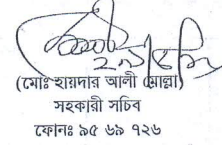 (মোঃ হায়দার আলী মোল্লা)
সহকারী সচিব
ফোনঃ ৯৫ ৬৯ ৭২৬